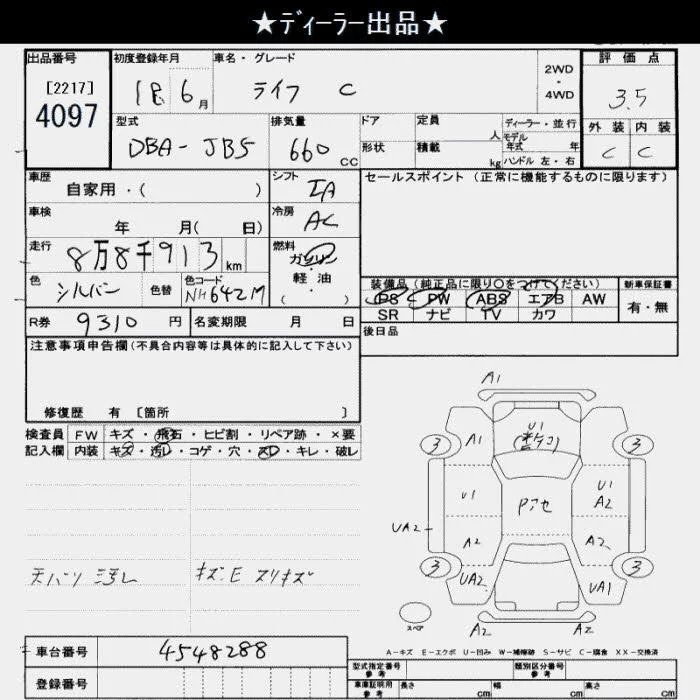 ★ディーラー出品★
出品番号 初度登録年月 車名・グレード 2WD・4WD 評価点
[2217] 4097 18年 6月 ライフ C 3.5
型式 排気量 ドア 定員 人 ディーラー・並行 外装 内装
DBA-JB5 660cc 形状 積載 kg モデル年式 年 ハンドル 左・右 C C
車歴 自家用・( ) シフト IA セールスポイント(正常に機能するものに限ります)
車検 年 月( 日) 冷房 AC
走行 8万8千913km 燃料 ガソリン・軽油・( )
色 シルバー 色替 色コード NH642M 装備品(純正品に限り○をつけてください) 新車保証書
PS PW ABS エアB AW 有・無
SR ナビ TV カワ
R券 9310円 名変期限 月 日 後日品
注意事項申告欄(不具合内容等は具体的に記入して下さい)
修復歴 有 〔箇所 〕
検査員 FW キズ・飛石・ヒビ割・リペア跡・×要
記入欄 内装 キズ・汚レ・コゲ・穴・スレ・キレ・破レ
天バリ 汚レ キズ.E スリキズ
A1
3 A1 U1 3
U1 Pアセ U1 A2
UA2 A2 A2
3 UA2 UA1 3
スペア A2 A2
A-キズ E-エクボ U-凹み W-補修跡 S-サビ C-腐食 XX-交換済
車台番号 4548288 型式指定番号 参考 類別区分番号 参考
登録番号 車庫証明用 参考 長さ cm 幅 cm 高さ cm